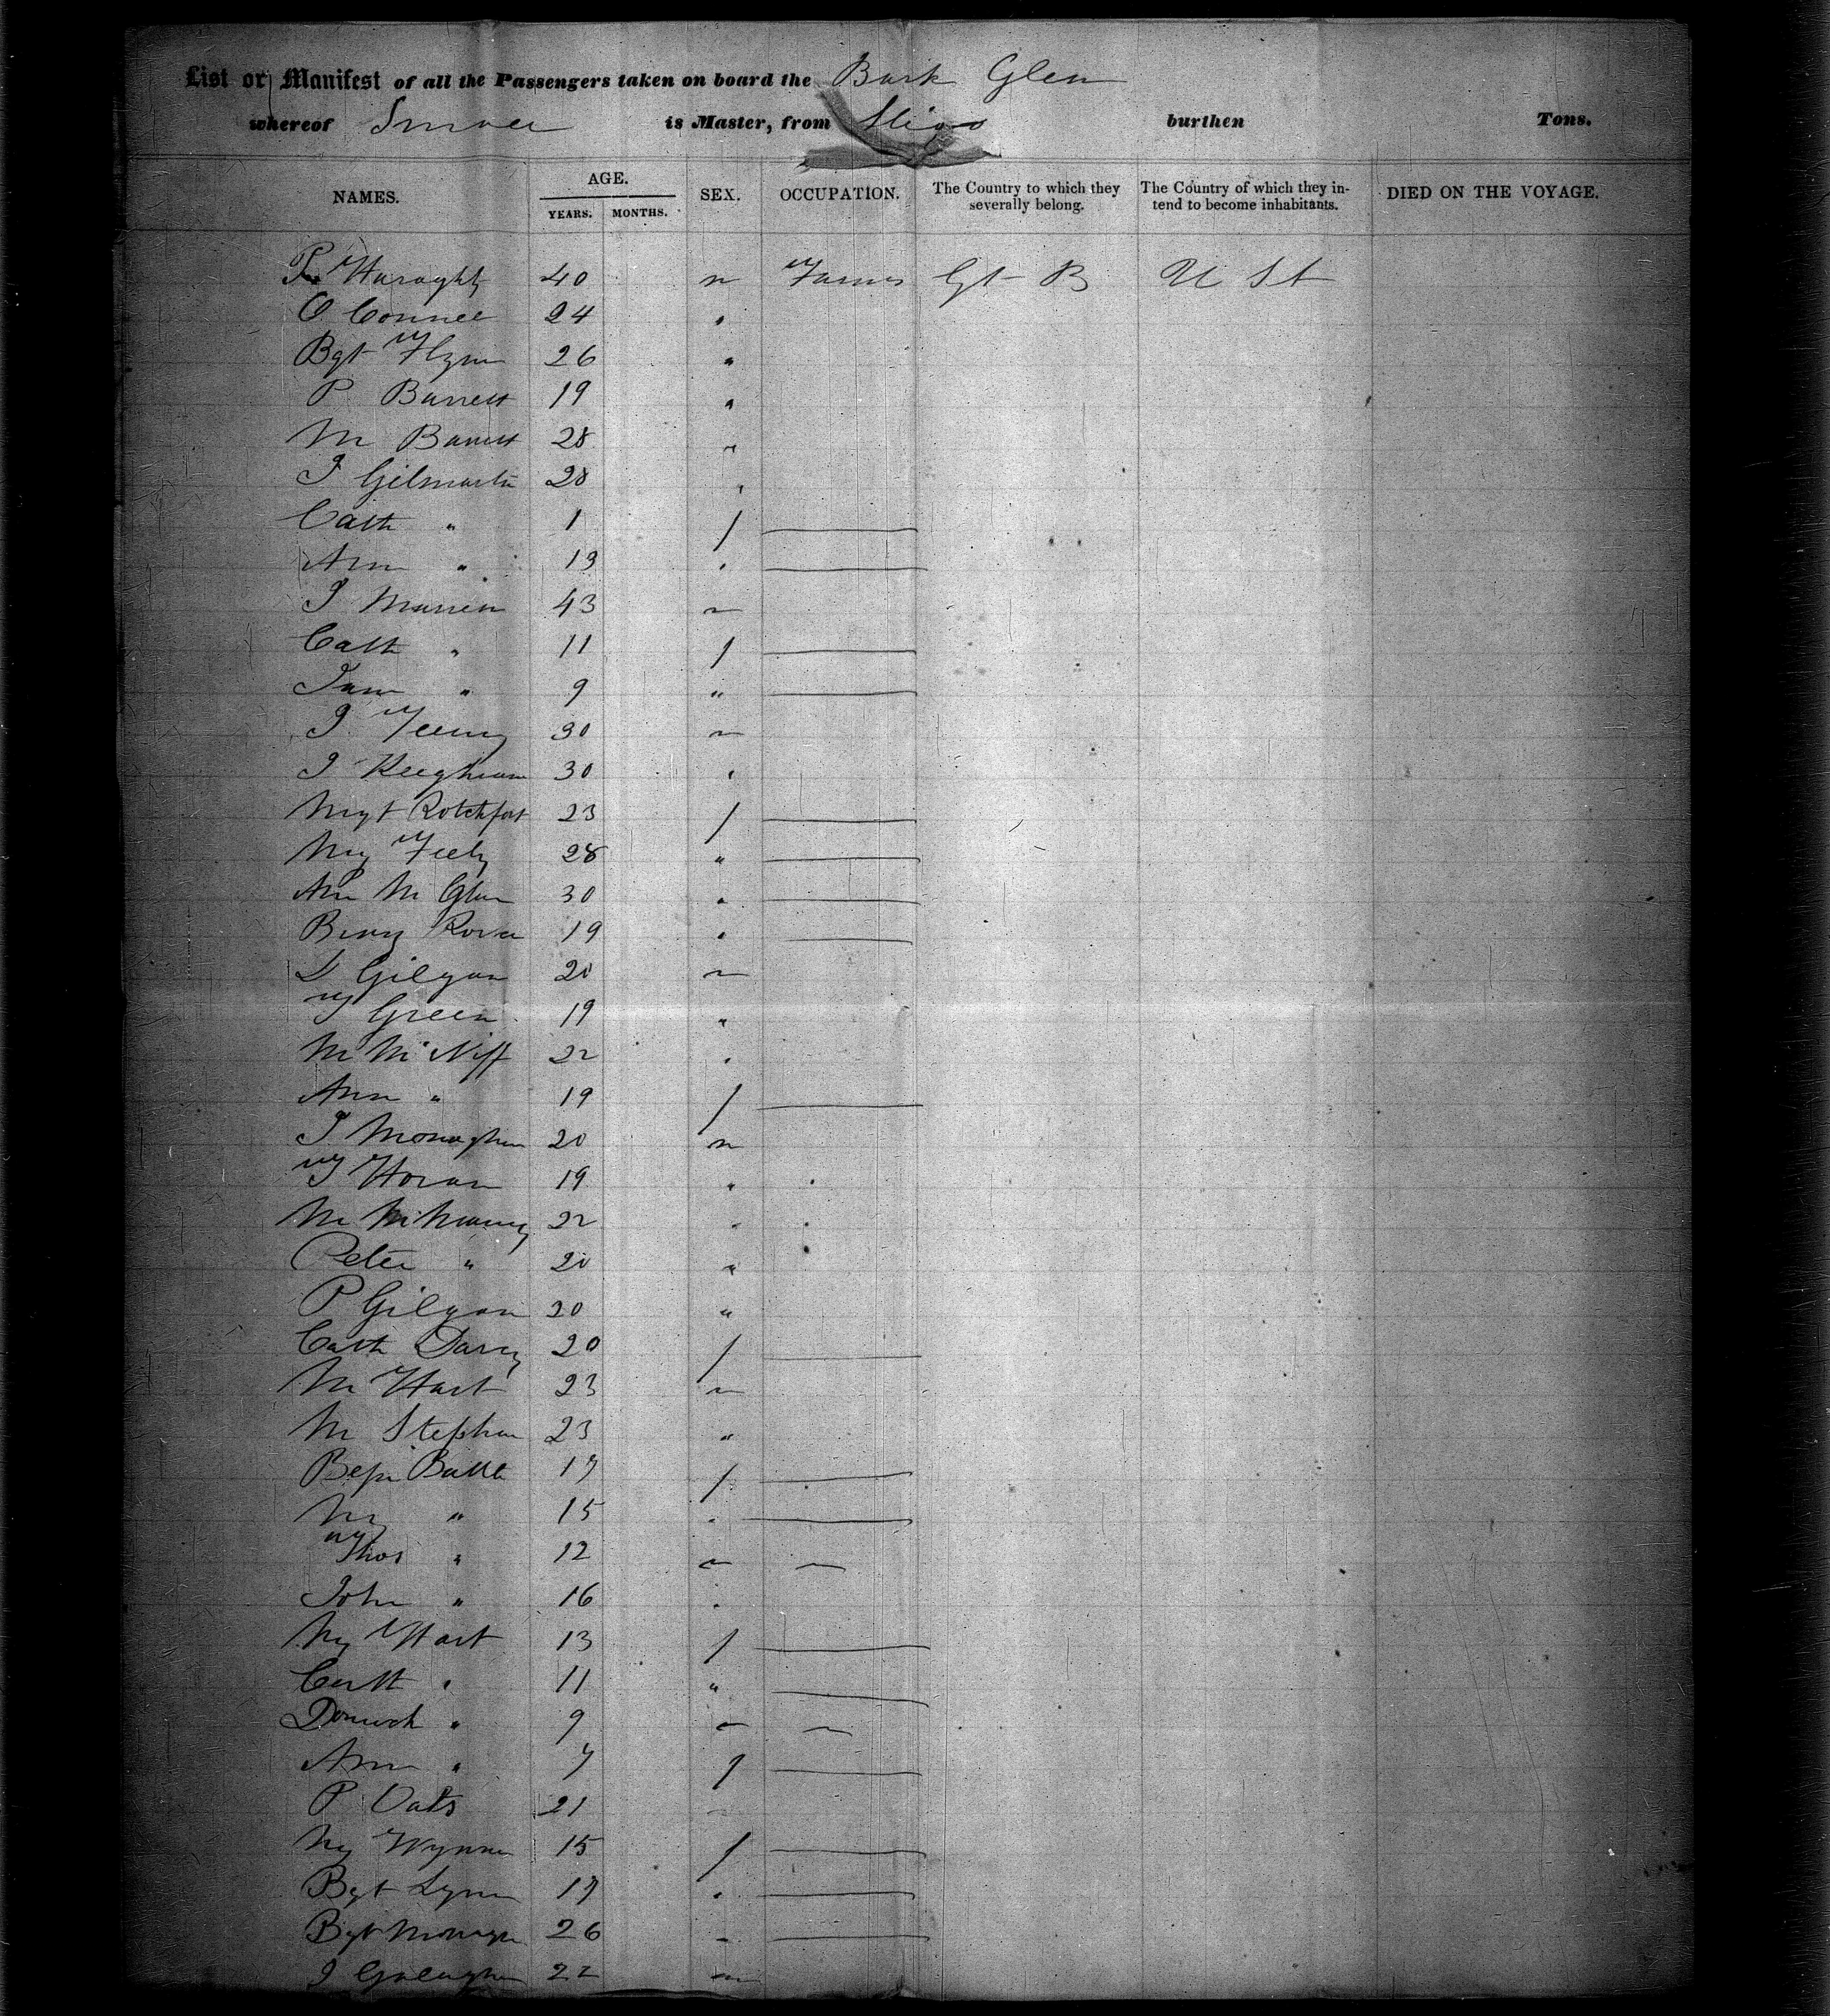 List or Manifest of all the Passengers taken on board the Bark Glen
whereof is Master, from Sligo burthen Tons.
NAMES. AGE. YEARS. MONTHS. SEX. OCCUPATION. The Country to which they severally belong. The Country of which they intend to become inhabitants. DIED ON THE VOYAGE.
40 m Farmer Gt B U St
24 "
Bgt Flynn 26 "
P Barrett 19 "
M Barrett 28 "
J Gilmartin 28 "
Cath " 1 f
Ann " 13 "
43 m
Cath " 11 f
Jane " 9 "
30 m
30 "
Mgt Rotchfort 23 f
My Feely 28 "
Ann 30 "
19 "
20 m
T Green 19 "
M Mc Niff 22 "
Ann " 19 f
J Monaghan 20 m
T Horan 19 "
M 22 "
Peter " 20 "
P Gilgan 20 "
Cath Darcy 20 f
M Hart 23 m
M Stephen 23 "
Bessi Battle 17 f
My " 15 "
Thos " 12 m
John " 16 "
My Hart 13 f
Cath " 11 "
Domick " 9 m
Ann " 7 f
P Oats 21
My Wynne 15 f
Bgt Lynn 17 "
Bgt 26 "
J 22 m